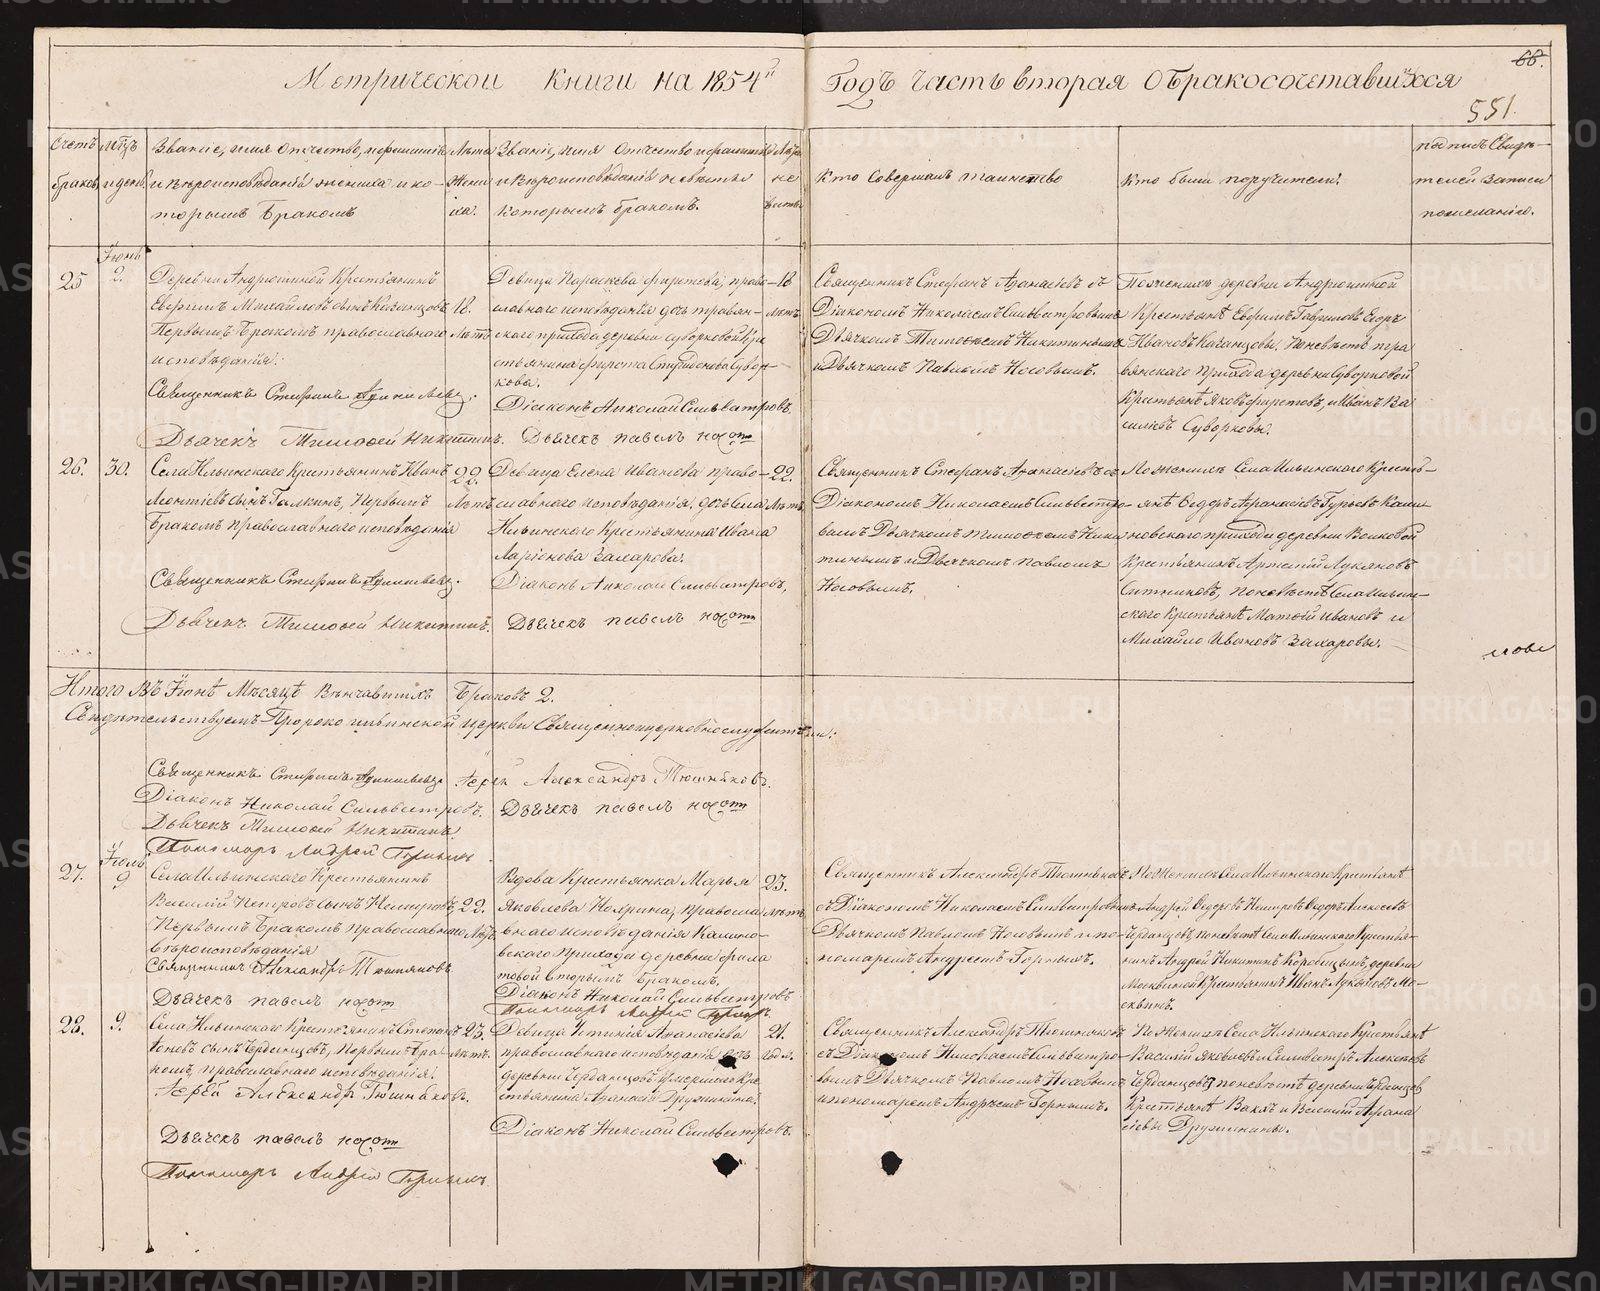 Метрической книги на 1854й
Годъ часть вторая о бракосочетавшихся
66.
551.
Счетъ браковъ
мѣсяцъ и день
Званіе, имя отчество, фамилія
и вѣроисповѣданія жениха и ко-
торымъ бракомъ
Лѣта
жени
ха.
Званіе, имя отчество и фамилія
и вѣроисповѣданія невѣсты
которымъ бракомъ.
Лѣта
не
вѣсты
Кто совершалъ таинство
Кто были поручители.
подпись свидѣ-
телей записи
по желанію.
Іюнь
25
2.
Деревни Андрюшиной крестьянинъ
Ефримъ Михайловъ сынъ
Первымъ бракомъ православнаго
исповѣданія.
Священникъ Стефанъ
Дьячекъ Тимофей Никитинъ.
18.
лѣтъ
Девица Параскева Фирстова, право-
славнаго исповѣданія дочь травян-
скаго прихода деревни Суворковой кре
стьянина Фирста Сувор-
кова.
Діаконъ Николай Сильвестровъ.
Дьячекъ павелъ носовъ
18
лѣтъ
Священникъ Стефанъ Афанасіевъ съ
Діакономъ Николаемъ Сильвестровымъ
Дьячкомъ Тимофеемъ Никитинымъ
и Дьячкомъ Павломъ Носовымъ.
По женихѣ деревни Андрюшиной
крестьянѣ Ефримъ Гавриловъ Егоръ
Ивановъ по невѣстѣ тра
вянскаго прихода деревни Суворковой
Крестьянѣ Яковъ Фирстовъ, и Иванъ Ва
силіевъ Суворковы.
26.
30.
Села Ильинскаго крестьянинъ Иванъ
Леонтіевъ сынъ Галкинъ, Первымъ
бракомъ православнаго исповѣданія
Священникъ Стефанъ
Дьячекъ Тимофей Никитинъ.
22.
лѣтъ
Девица Елена Иванова право-
славнаго исповѣданія, дочь села
Ильинскаго крестьянина Ивана
Ларіонова Захарова.
Діаконъ Николай Сильвестровъ.
Дьячекъ павелъ носовъ
22.
лѣтъ
Священникъ Стефанъ Афанасіевъ съ
Діакономъ Николаемъ Сильвестро-
вымъ Дьячкомъ Тимофеемъ Ники
тинымъ и Дьячкомъ Павломъ
Носовымъ.
По женихѣ Села Ильинскаго кресть-
янѣ Ѳедоръ Афанасіевъ Гурьевъ Кали-
новскаго прихода деревни Волковой
Крестьянинъ Артемій Лукяновъ
Ситниковъ, по невѣстѣ Села Ильин-
скаго крестьянѣ Матфій Ивановъ и
Михайло Ивановъ Захаровы.
Итого въ Іюнѣ Мѣсяцѣ вѣнчавшихъ браковъ 2.
Свидѣтельствуемъ Пророко ильинской церкви Священноицерковнослужители:
Священникъ Стефанъ
Іерей Александръ Тюшняковъ.
Діаконъ Николай Сильвестровъ.
Дьячекъ павелъ носовъ
Дьячекъ Тимофей Никитинъ
Пономарь Андрей Горныхъ
Іюль
27.
9
Села Ильинскаго крестьянинъ
Василій Петровъ сынъ
Первымъ бракомъ православнаго
вѣроисповѣданія
Священникъ Александръ Тюшняковъ
Дьячекъ павелъ носовъ
22.
лѣтъ
Вдова крестьянка Марья
Яковлева православ
наго исповѣданія Калино-
вскаго прихода деревни Фила
товой вторымъ бракомъ.
Діаконъ Николай Сильвестровъ
Пономарь Андрей Горныхъ
23.
лѣтъ
Священникъ Александръ Тюшняковъ
съ Діакономъ Николаемъ Сильвестровымъ
Дьячкомъ Павломъ Носовымъ и по-
номаремъ Андреемъ Горныхъ.
По женихѣ Села Ильинскаго крестьянѣ
Андрей Ѳедоровъ Ѳедоръ Алексѣевъ
Черданцевъ, по невѣстѣ Села Ильинскаго крестья-
нинъ Андрей Никитинъ Коробицынъ, деревни
Москвиной крестьянинъ Иванъ Лукояновъ Мо-
сквинъ.
28.
9.
Села Ильинскаго крестьянинъ Степанъ
сынъ Черданцевъ, первымъ бра-
комъ, православнаго исповѣданія.
Іерей Александръ Тюшняковъ.
Дьячекъ павелъ носовъ
Пономарь Андрей Горныхъ
23.
лѣтъ.
Девица Афанасіева
православнаго исповѣданія дочь
деревни Черданцовой умершаго кре
стьянина Афанасія Дружинина.
Діаконъ Николай Сильвестровъ.
21.
годъ.
Священникъ Александръ Тюшняковъ
съ Діакономъ Николаемъ Сильвестро-
вымъ Дьячкомъ Павломъ Носовымъ
и пономаремъ Андреемъ Горныхъ.
По женихѣ Села Ильинскаго крестьянѣ
Василій Яковлевъ Силвестръ Алексѣевъ
Черданцовы, по невѣстѣ деревни Черданцовой
Крестьянѣ и Афана
сіевы Дружинины.
METRIKI.GASO-URAL.RU